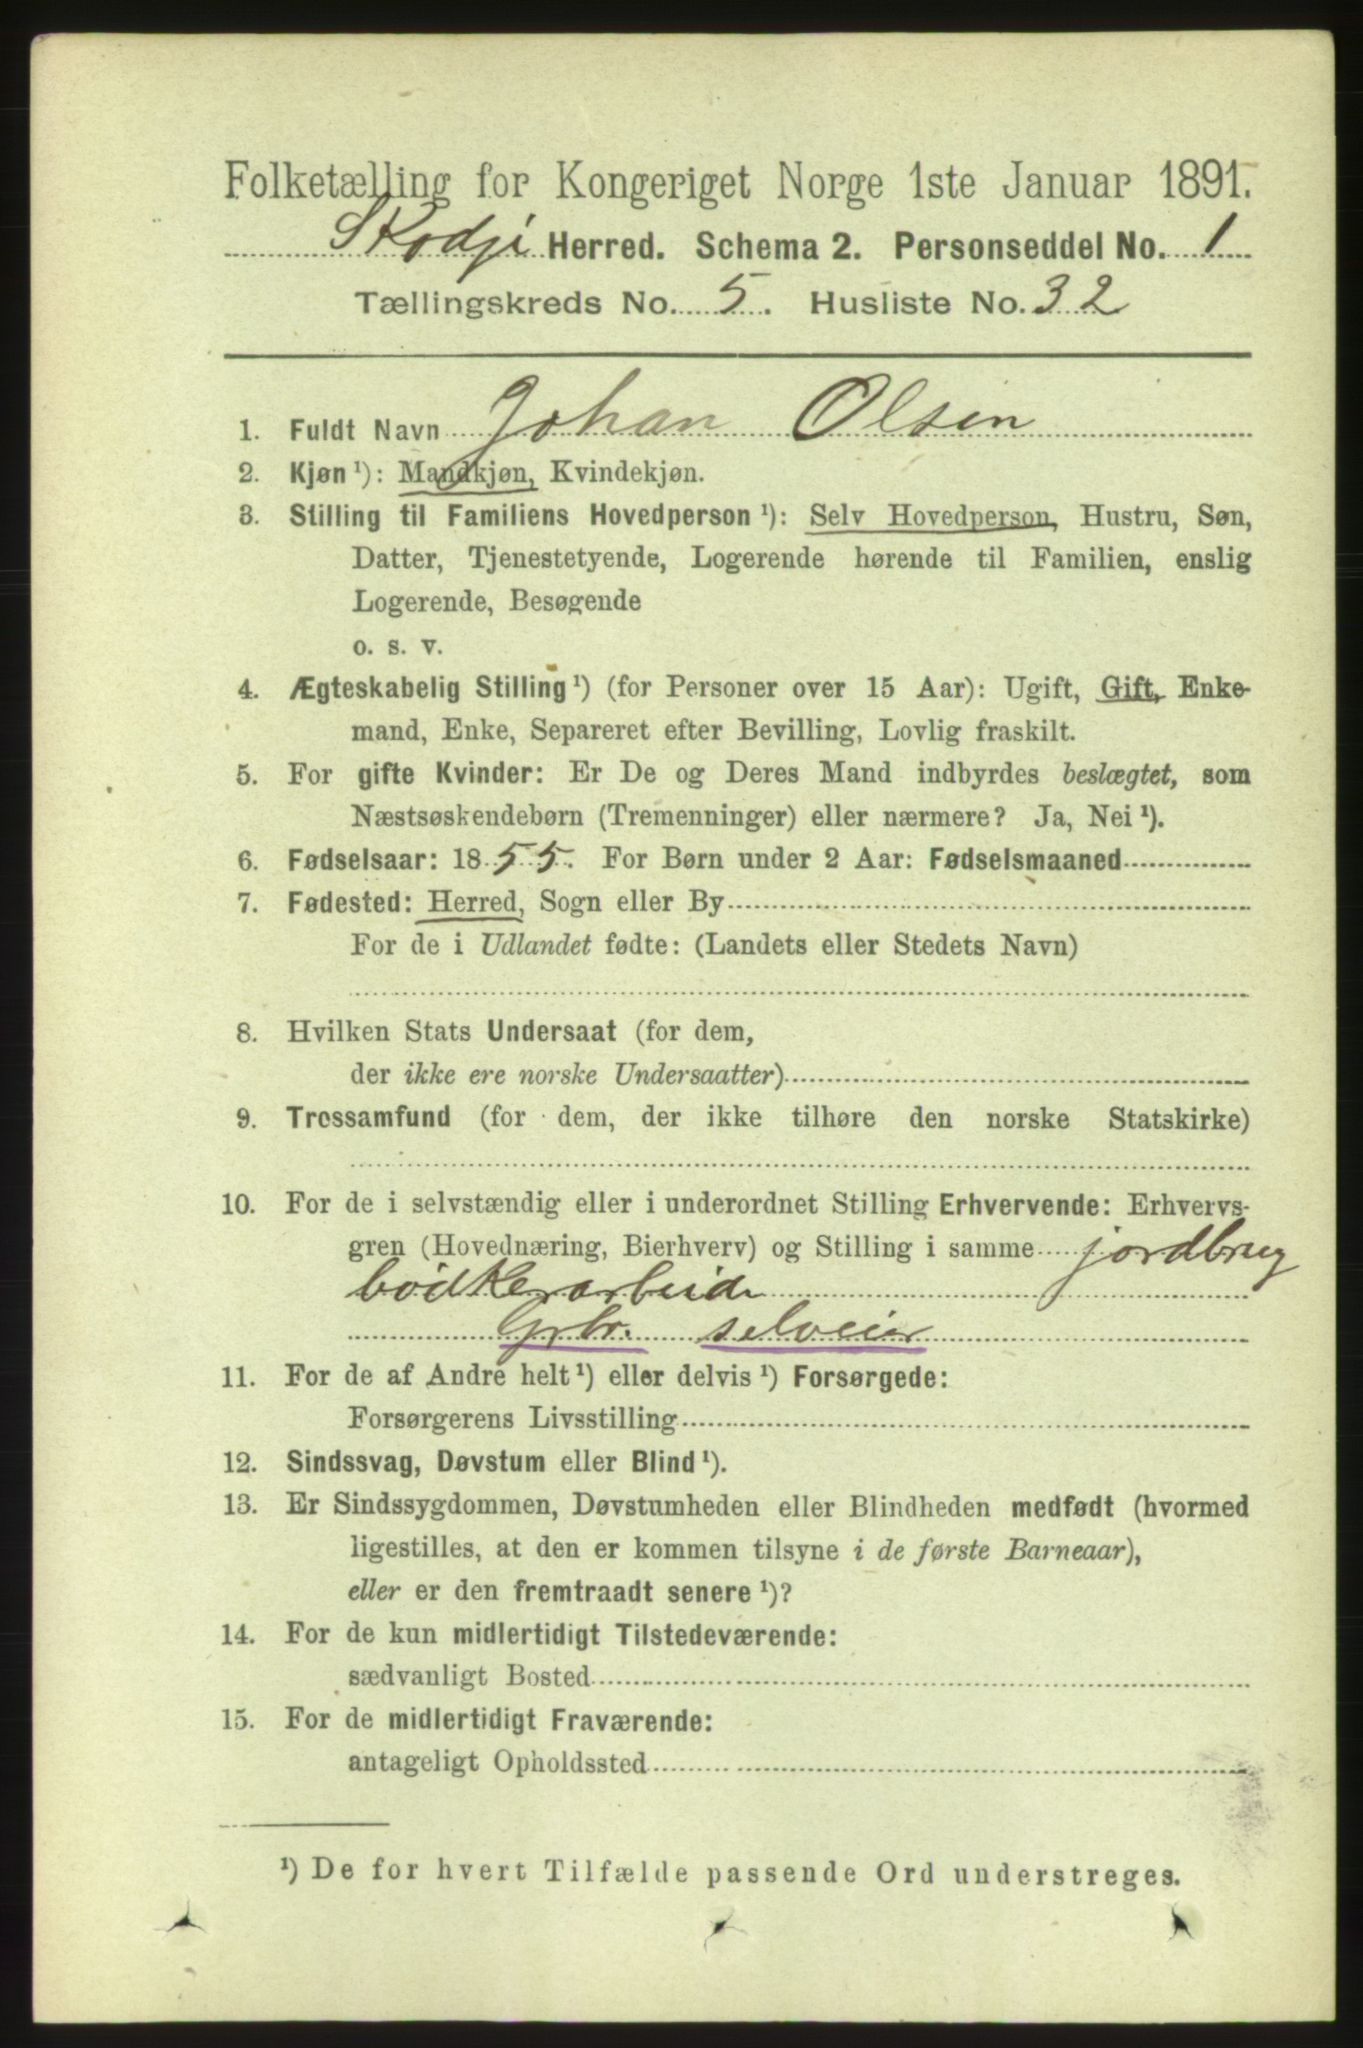 Folketælling for Kongeriget Norge 1ste Januar 1891.
Skodje Herred. Schema 2. Personseddel No. 1
Tællingskreds No. 5. Husliste No. 32
1. Fuldt Navn Johan Olsen
2. Kjøn ¹): Mandkjøn, Kvindekjøn.
3. Stilling til Familiens Hovedperson ¹): Selv Hovedperson, Hustru, Søn,
Datter, Tjenestetyende, Logerende hørende til Familien, enslig
Logerende, Besøgende
o. s. v.
4. Ægteskabelig Stilling ¹) (for Personer over 15 Aar): Ugift, Gift, Enke-
mand, Enke, Separeret efter Bevilling, Lovlig fraskilt.
5. For gifte Kvinder: Er De og Deres Mand indbyrdes beslægtet, som
Næstsøskendebørn (Tremenninger) eller nærmere? Ja, Nei ¹).
6. Fødselsaar: 1855. For Børn under 2 Aar: Fødselsmaaned
7. Fødested: Herred, Sogn eller By
For de i Udlandet fødte: (Landets eller Stedets Navn)
8. Hvilken Stats Undersaat (for dem,
der ikke ere norske Undersaatter)
9. Trossamfund (for dem, der ikke tilhøre den norske Statskirke)
10. For de i selvstændig eller i underordnet Stilling Erhvervende: Erhvervs-
gren (Hovednæring, Bierhverv) og Stilling i samme jordbrug
bödkerarbeide
Grbr. selveier
11. For de af Andre helt ¹) eller delvis ¹) Forsørgede:
Forsørgerens Livsstilling
12. Sindssvag, Døvstum eller Blind ¹).
13. Er Sindssygdommen, Døvstumheden eller Blindheden medfødt (hvormed
ligestilles, at den er kommen tilsyne i de første Barneaar),
eller er den fremtraadt senere ¹)?
14. For de kun midlertidigt Tilstedeværende:
sædvanligt Bosted
15. For de midlertidigt Fraværende:
antageligt Opholdssted
¹) De for hvert Tilfælde passende Ord understreges.